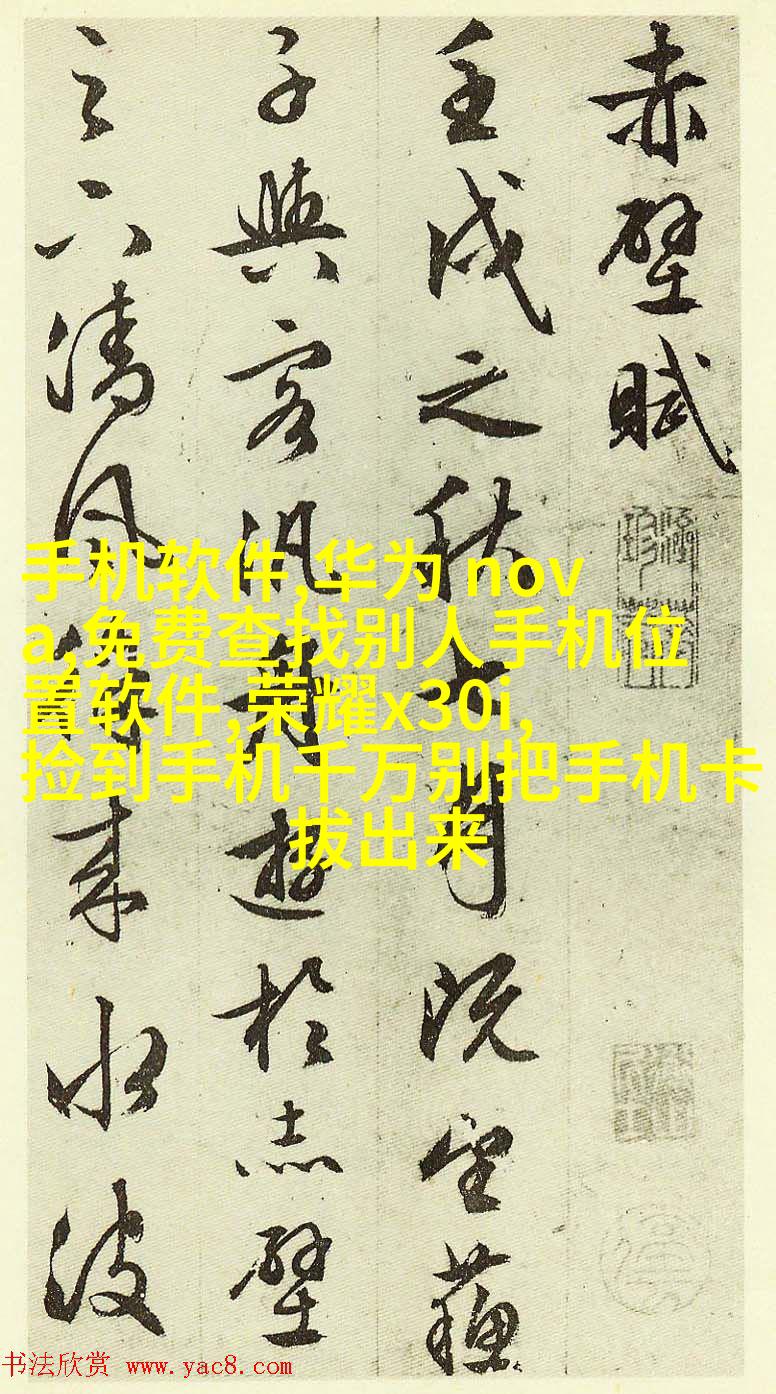 赤壁賦
壬戌之秋七月既望蘇
子與客汎舟遊於赤壁
之下清風徐來水波
手机软件,华为 nov
a,免费查找别人手机位
置软件,荣耀x30i,
捡到手机千万别把手机卡
拔出来
书法欣赏 www.yac8.com